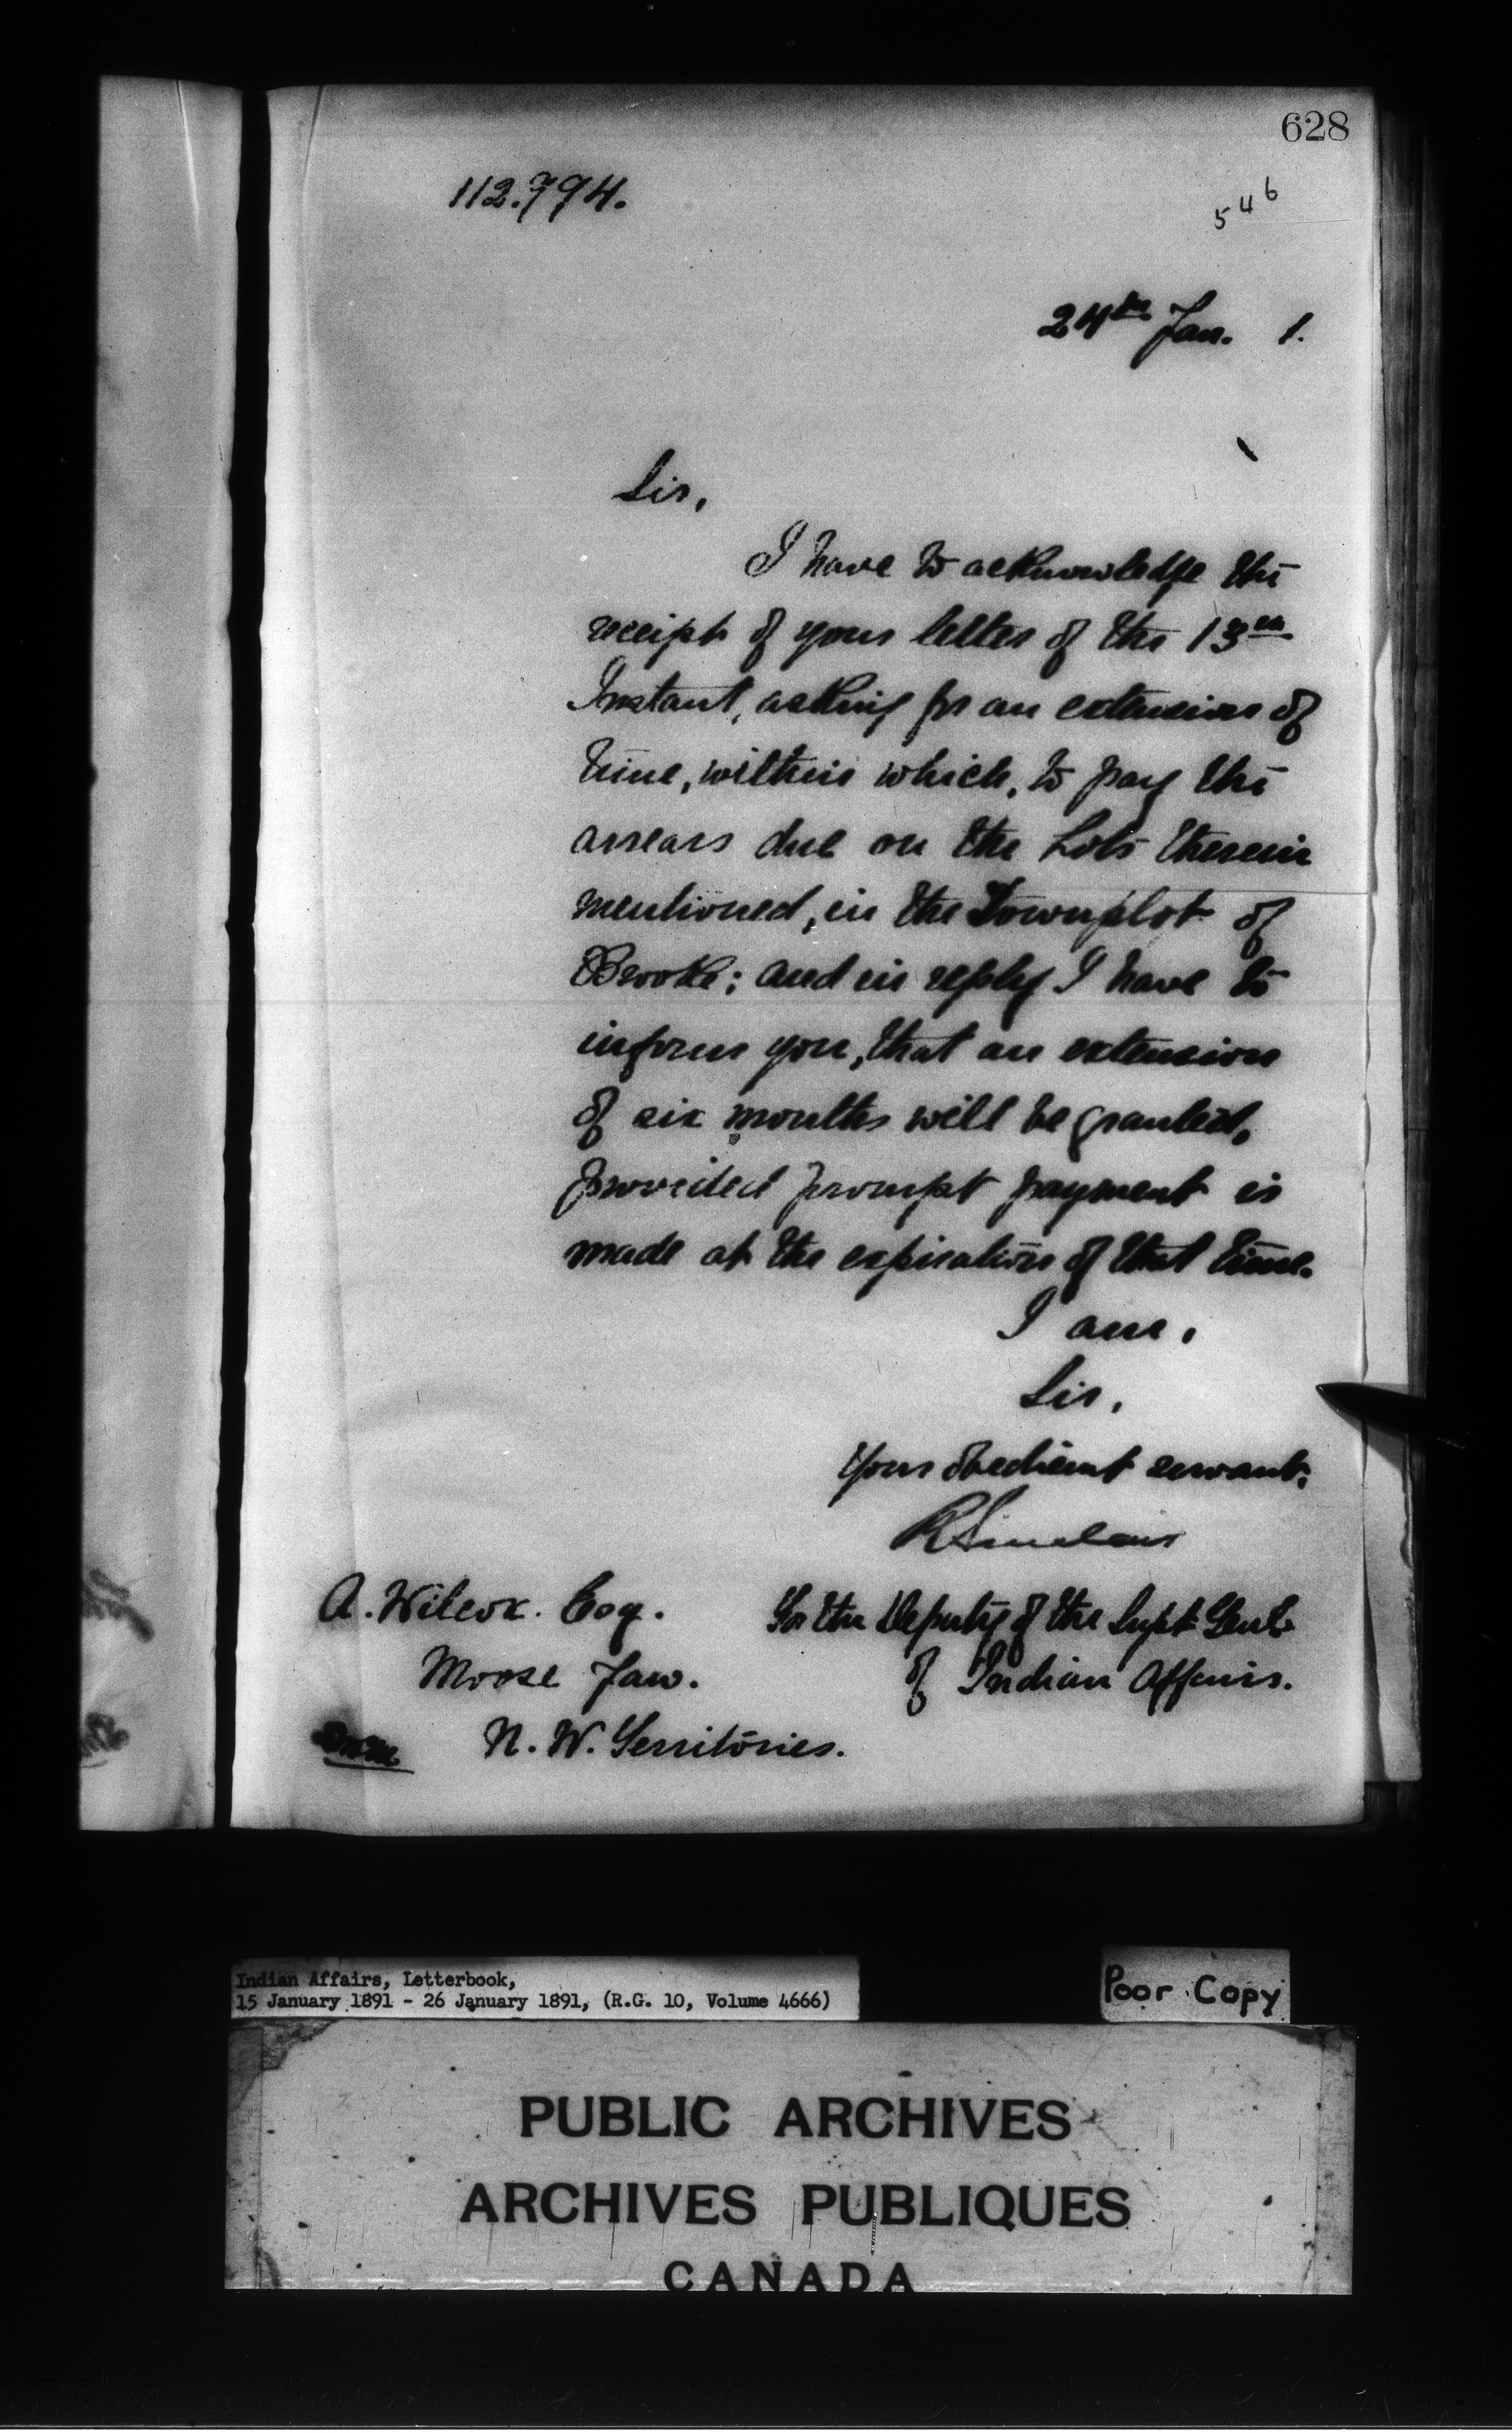 628
112.794.
546
24th Jan. 1.
Sir,
I have to acknowledge the
receipt of your letter of the 13th
Instant, asking for an extension of
time, within which, to pay the
arrears due on the Lots therein
mentioned, in the Townplot of
Brooke; and in reply I have to
inform you, that an extension
of six months will be granted,
provided prompt payment is
made at the expiration of that time.
I am,
Sir,
Your obedient servant,
R Sinclair
A. Wilcox. Esq.
For the Deputy of the Supt. Genl.
Moose Jaw.
of Indian Affairs.
N. W. Territories.
Indian Affairs, Letterbook,
15 January 1891 - 26 January 1891, (R.G. 10, Volume 4666)
Poor Copy
PUBLIC ARCHIVES
ARCHIVES PUBLIQUES
CANADA